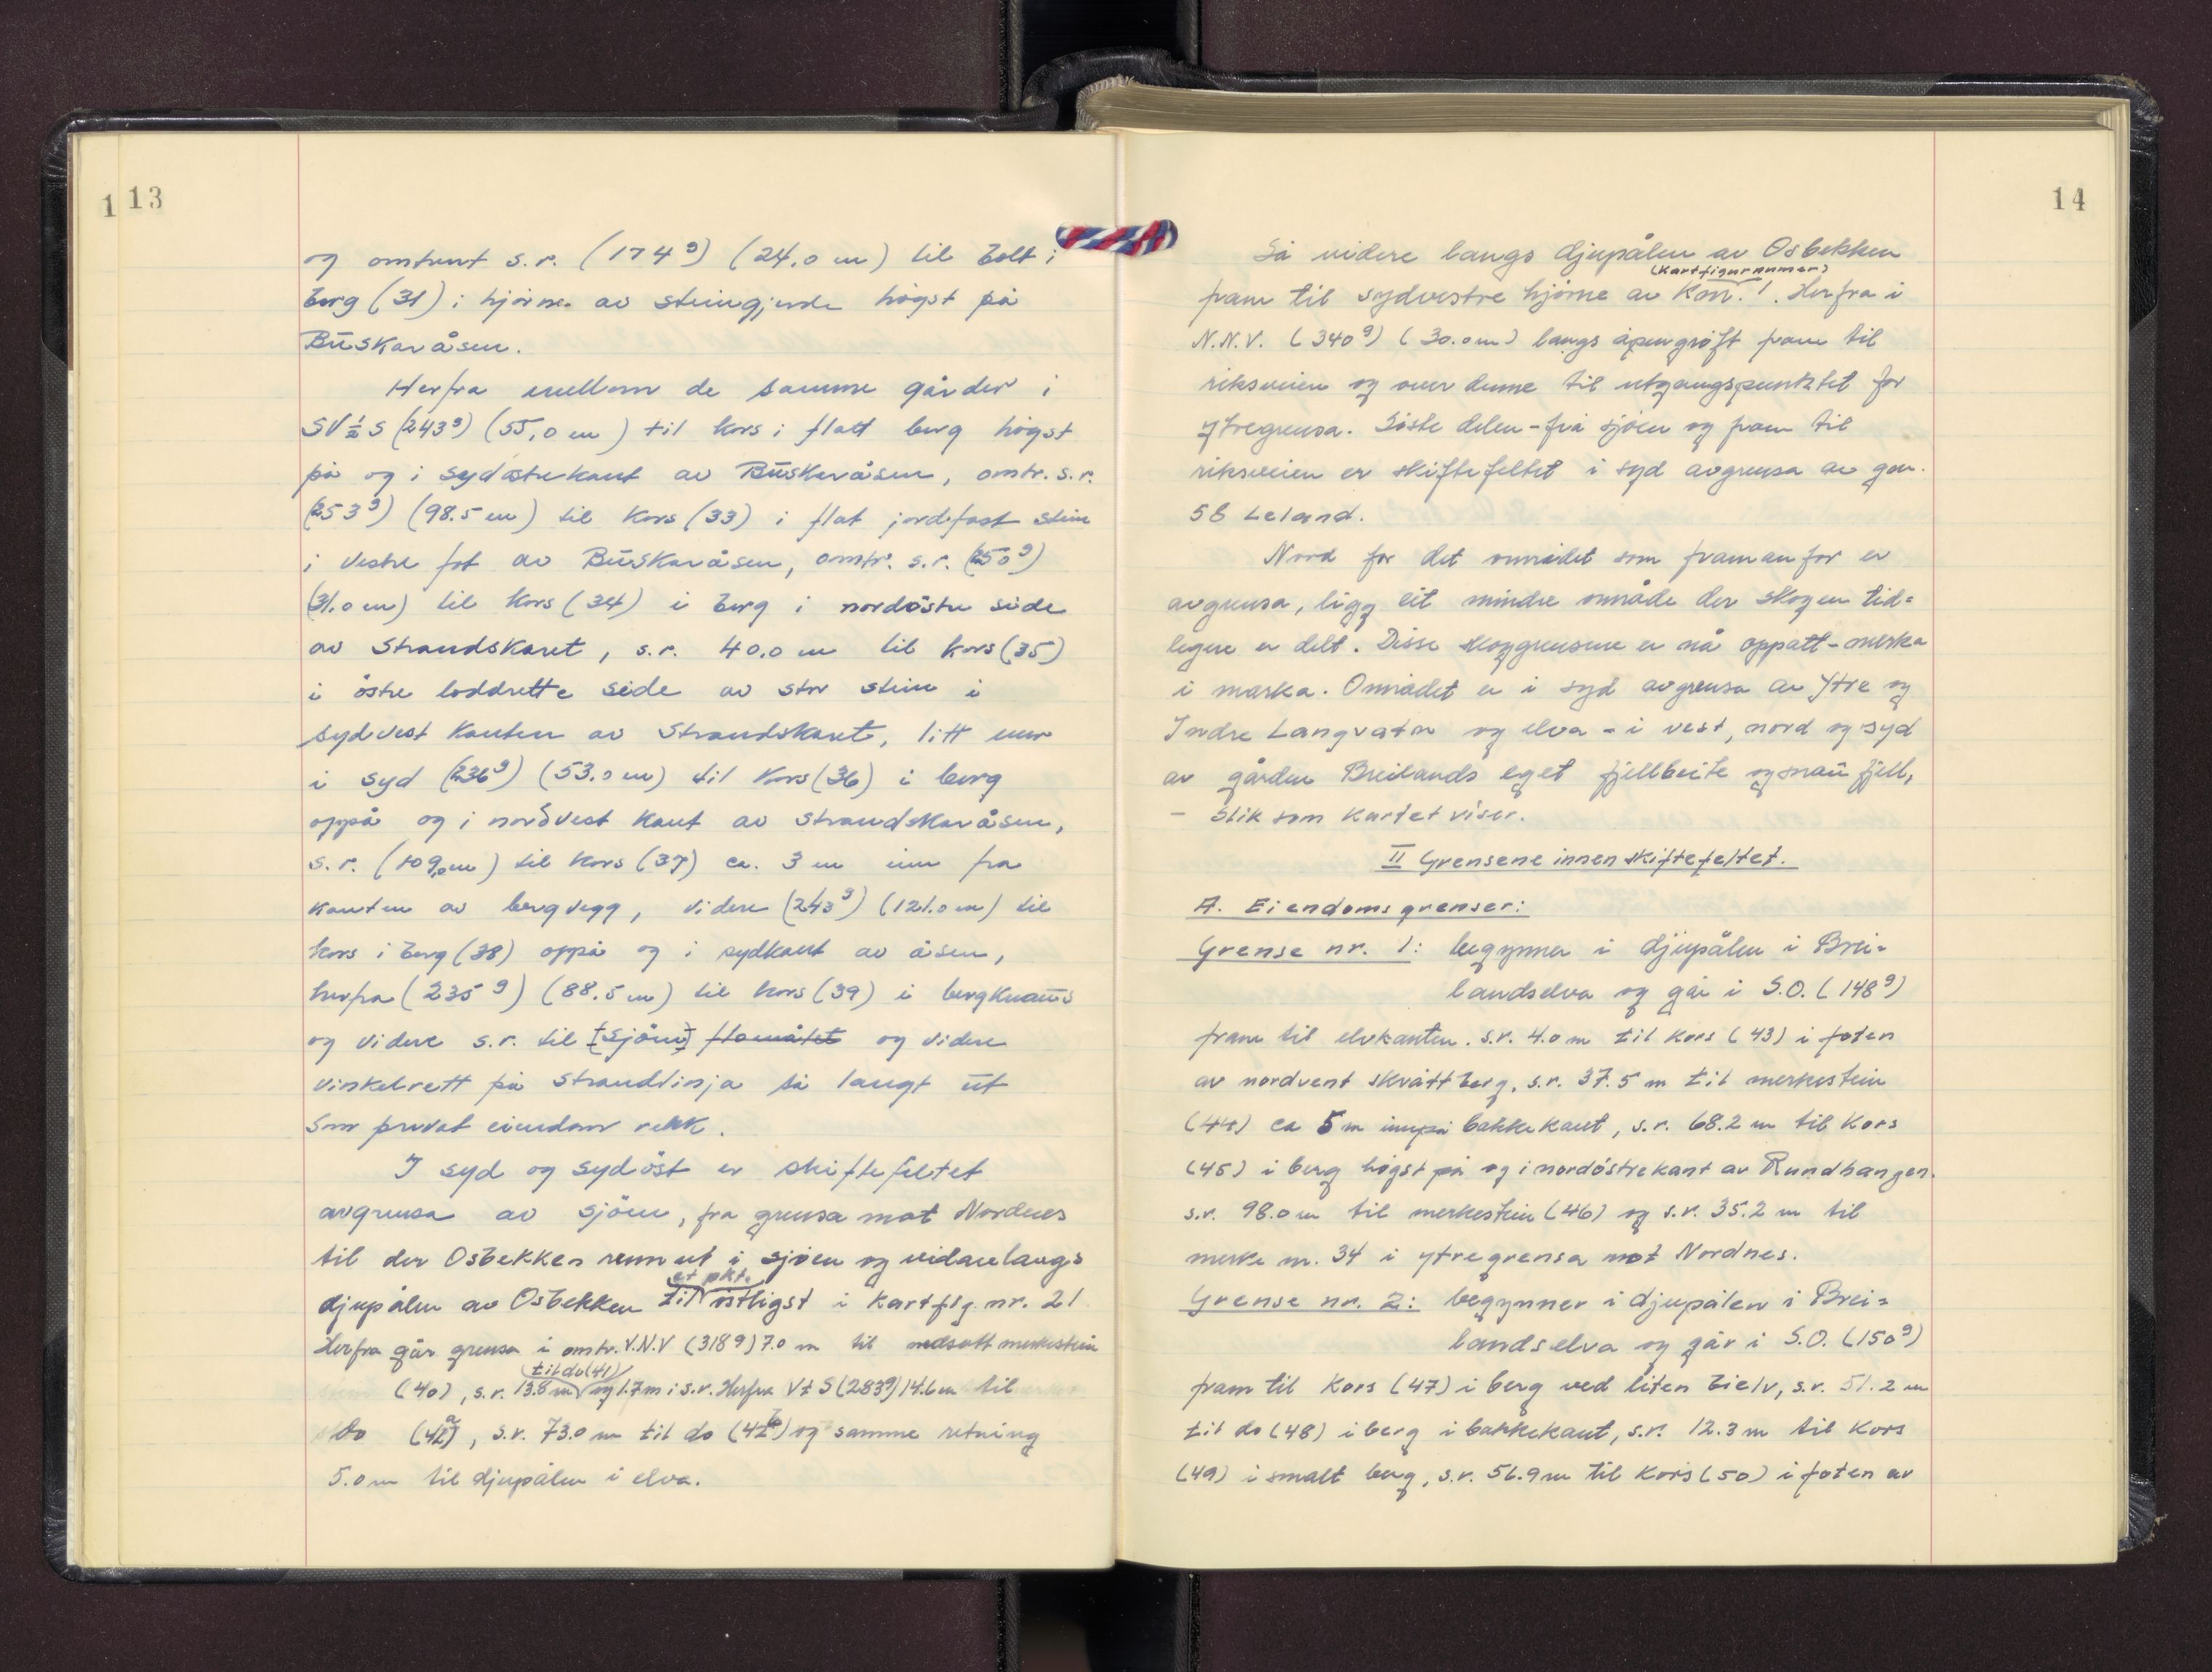 1 13
og omtrent s.r. (174g) (24.0 m) til bolt i
berg (31) i hjørne av steingjerde högst på
Buskaråsen.
Herfra mellom de samme gårder i
SV½S (243g) (55,0 m) til kors i flatt berg högst
på og i sydöstre kant av Buskaråsen, omtr. s.r.
(253g) (98.5 m) til kors (33) i flat jordfast stein
i vestre fot av Buskaråsen, omtr. s.r. (250g)
(31.0 m) til kors (34) i berg i nordöstre side
av Strandskaret, s.r. 40.0 m til kors (35)
i östre loddrette side av stor stein i
sydvest kanten av Strandskaret, litt mer
i syd (236g) (53.0 m) til kors (36) i berg
oppå og i nordvest kant av Strandskaråsen,
s.r. (109,0 m) til kors (37) ca. 3 m inn fra
kanten av bergvegg, videre (243g) (121.0 m) til
kors i berg (38) oppå og i sydkant av åsen,
herfra (235g) (88.5 m) til kors (39) i bergknaus
og videre s.r. til [sjöen] flomålet og videre
vinkelrett på strandlinja så langt ut
som privat eiendom rekk.
I syd og sydöst er skiftefeltet
avgrensa av sjöen, fra grensa mot Nordnes
til der Osbekken renn ut i sjöen og vidare langs
et pkt.
djupålen av Osbekken til östligst i kartfig. nr. 21
Herfra går grensa i omtr. V.N.V (318g) 7.0 m til nedsatt merkestein
til do (41)
(40), s.r. 13.8 m og 1.7 m i s.r. Herfra V t S (283g) 14.6 m til
do (42a), s.r. 73.0 m til do (42b) og samme retning
5.0 m til djupålen i elva.
14
Så videre langs djupålen av Osbekken
(kartfigurnumer)
fram til sydvestre hjörne av Kan. 1. Herfra i
N.N.V. (340g) (30.0 m) langs åpengröft fram til
riksveien og over denne til utgangspunktet for
ytregrensa. Siste delen - frå sjöen og fram til
riksveien er skiftefeltet i syd avgrensa av gnr.
58 Leland.
Nord for det området som framanfor er
avgrensa, ligg eit mindre område der skogen tid=
legere er delt. Disse skoggrensene er nå oppatt-merka
i marka. Området er i syd avgrensa av Ytre og
Indre Langvatn og elva - i vest, nord og syd
av gården Breilands eget fjellbeite og snaufjell,
- Slik som kartet viser.
II Grensene innen skiftefeltet.
A. Eiendomsgrenser:
Grense nr. 1: begynner i djupålen i Brei=
landselva og går i S.O. (148g)
fram til elvkanten. s.r. 4.0 m til kors (43) i foten
av nordvent skrått berg, s.r. 37.5 m til merkestein
(44) ca 5 m innpå bakkekant, s.r. 68.2 m til kors
(45) i berg högst på og i nordöstrekant av Rundhaugen.
s.r. 98.0 m til merkestein (46) og s.r. 35.2 m til
merke nr. 34 i ytregrensa mot Nordnes.
Grense nr. 2: begynner i djupålen i Brei=
landselva og går i S.O. (150g)
fram til kors (47) i berg ved liten bielv, s.r. 51.2 m
til do (48) i berg i bakkekant, s.r. 12.3 m til kors
(49) i smalt berg, s.r. 56.9 m til kors (50) i foten av